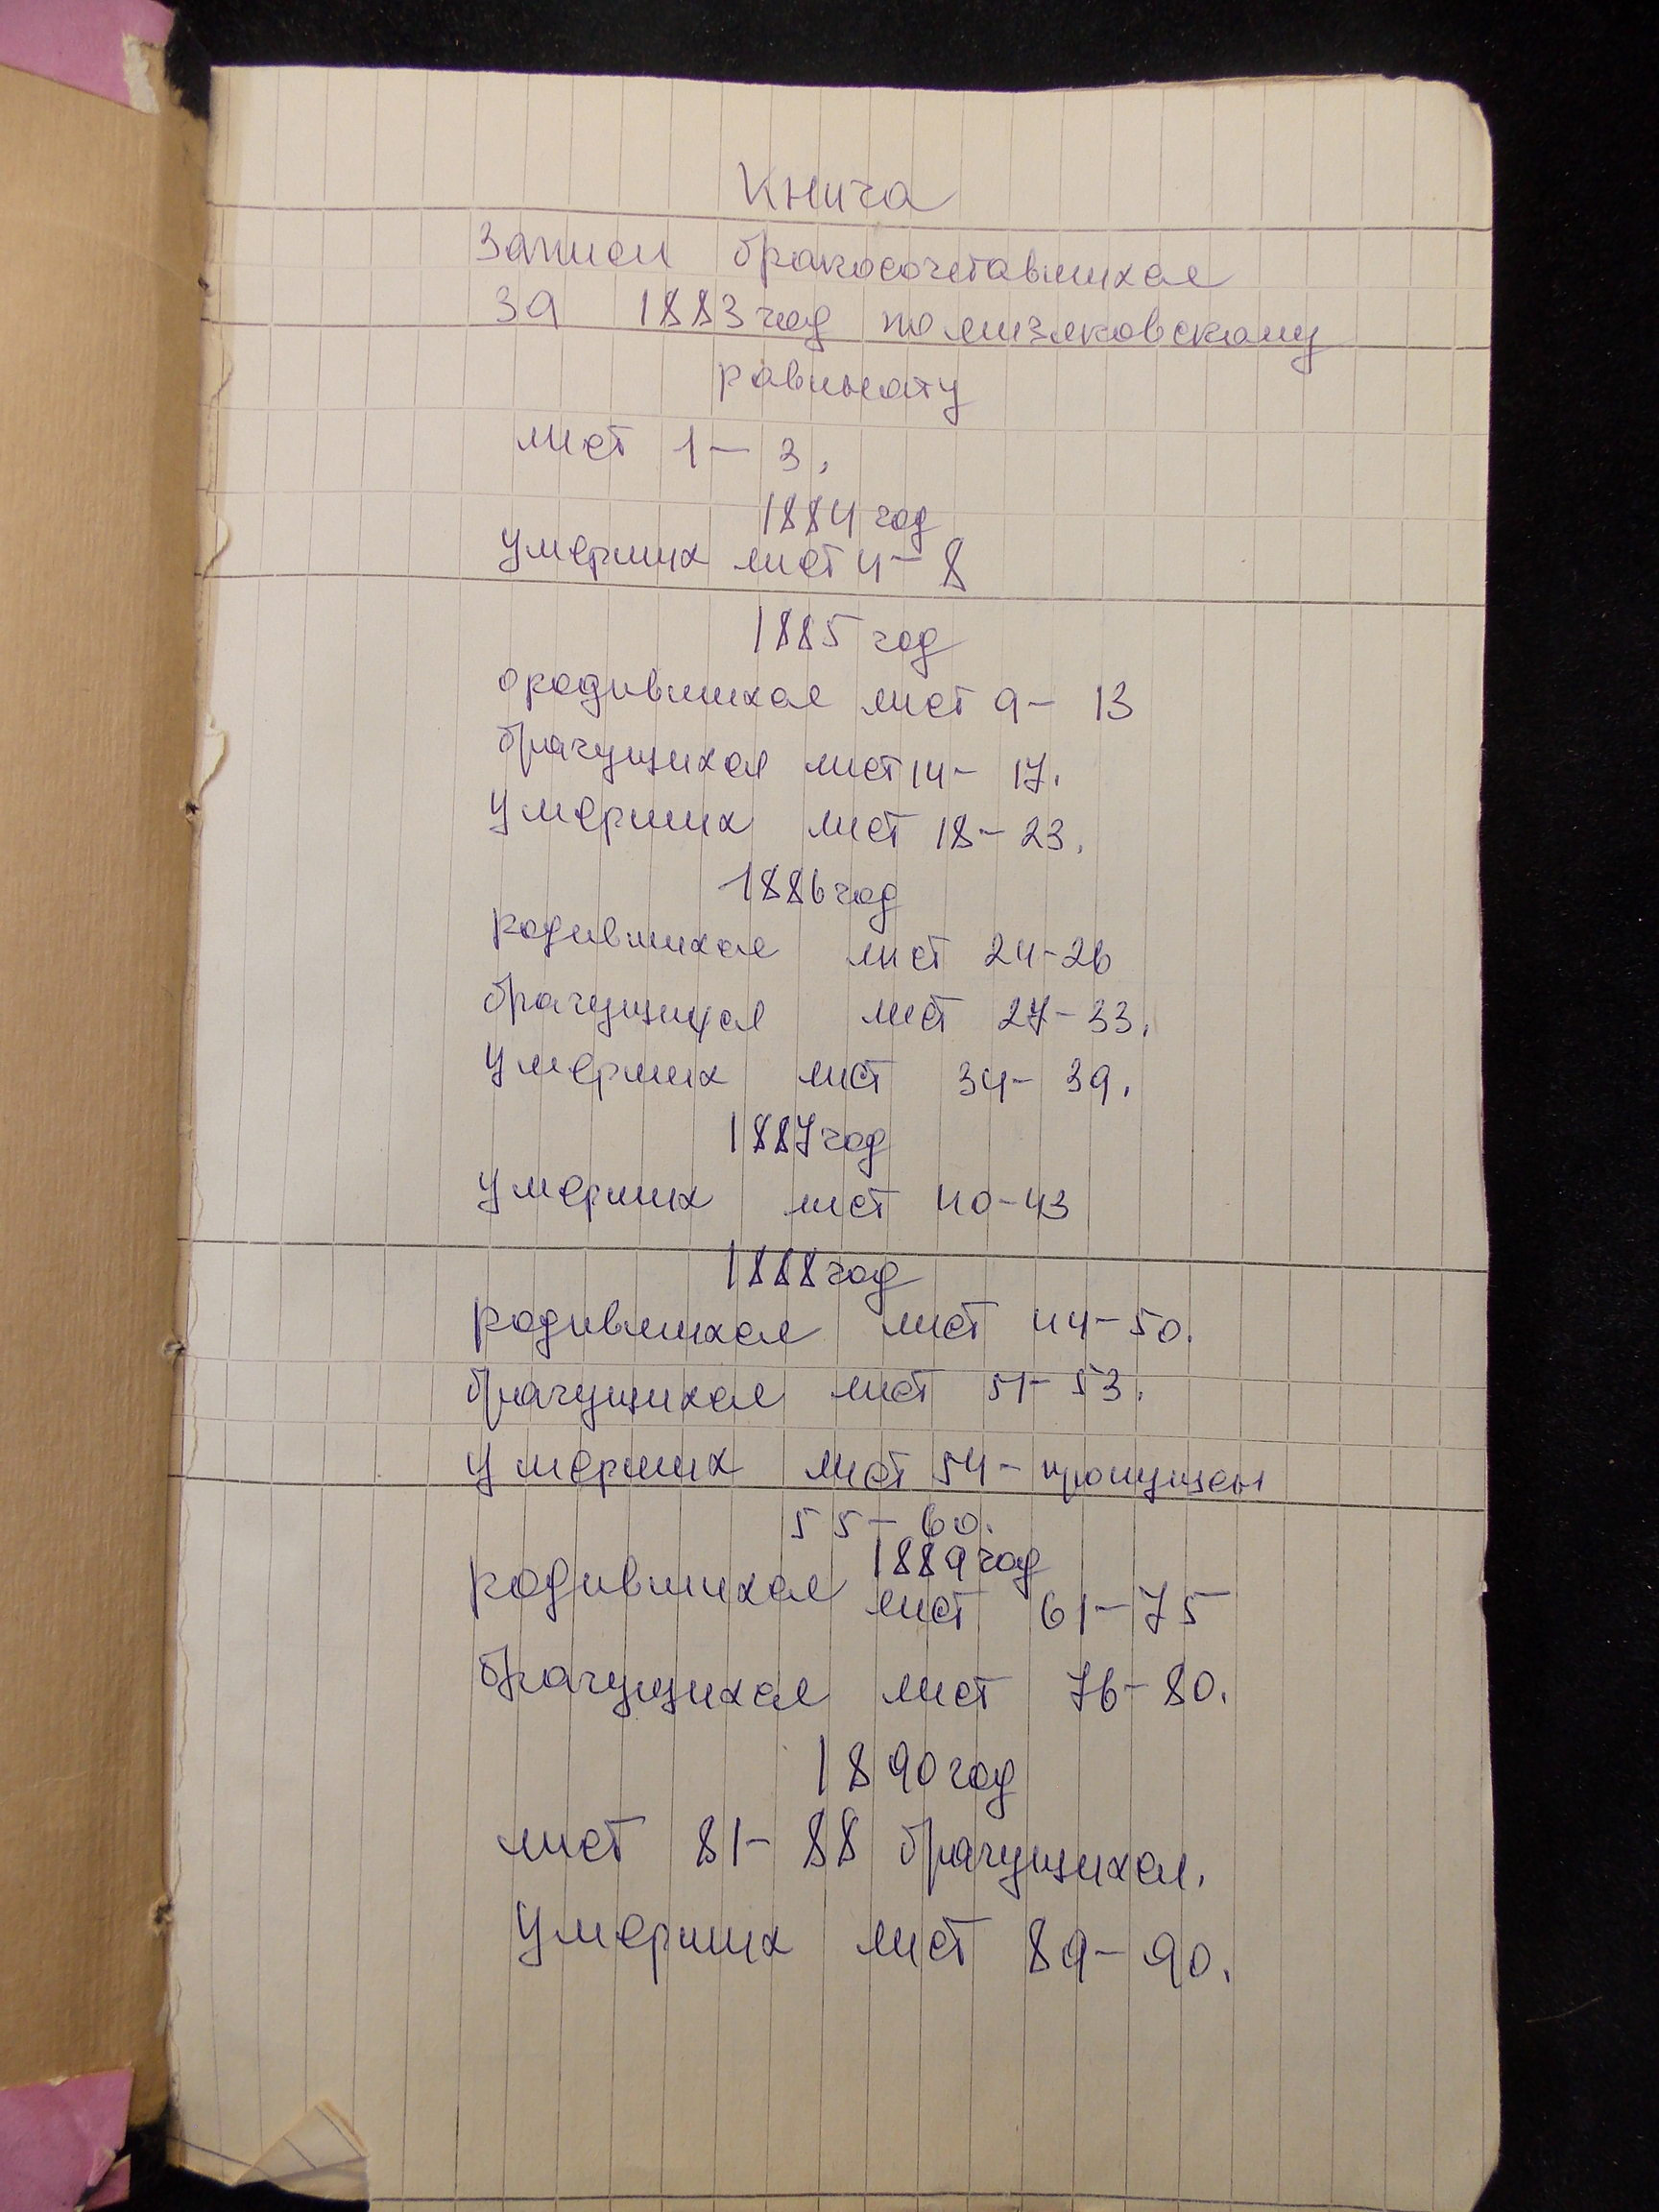 Книга
Записи бракосочетавшихся
за 1883 год по мизяковскому
равинату
лист 1 – 3.
1884 год
умерших лист 4 – 8
1885 год
о родившихся лист 9 – 13
брачущихся лист 14 – 17.
умерших лист 18 – 23.
1886 год
родившихся лист 24 – 26
брачущихся лист 27 – 33.
умерших лист 34 – 39.
1887 год
умерших лист 40 – 43
1888 год
родившихся лист 44 – 50.
брачущихся лист 51 – 53.
умерших лист 54 – пропущен
55 – 60.
1889 год
родившихся лист 61 – 75
брачущихся лист 76 – 80.
1890 год
лист 81 – 88 брачущихся.
умерших лист 89 – 90.